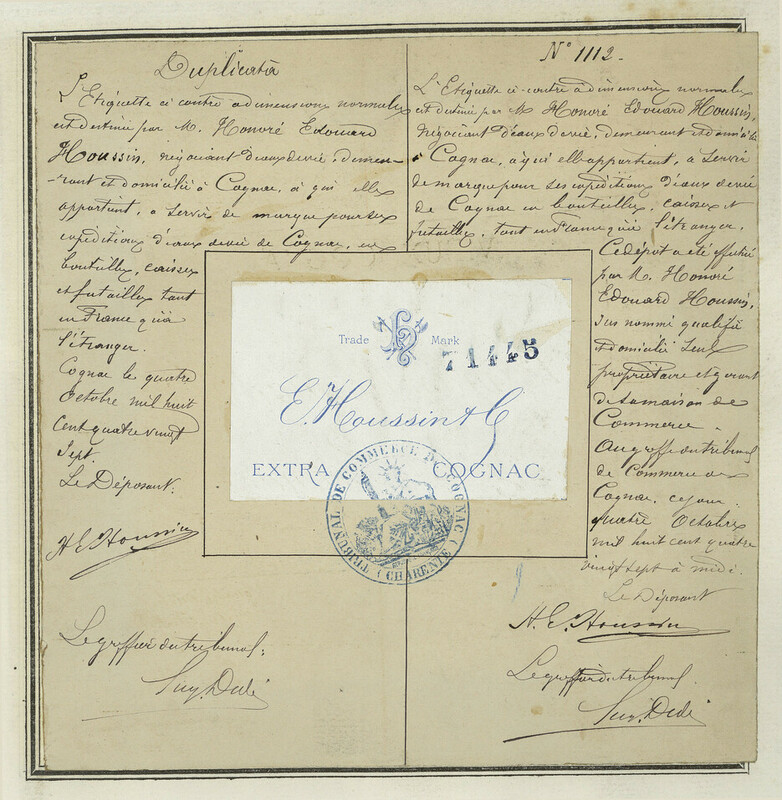 Duplicata
L'Etiquette ci contre a dimensions normales
est destinée par M. Honoré Edouard
Houssin, négociant d'eaux de vie, demeu-
rant et domicilié à Cognac, à qui elle
appartient, a servir de marque pour ses
expéditions d'eaux de vie de Cognac, en
bouteilles, caisses
et futailles tant
en France qu'à
l'étranger.
Cognac le quatre
Octobre mil huit
Cent quatre vingt
Sept.
Le Déposant:
H E Houssin
Le greffier du tribunal:
N° 1112.
L'Etiquette ci-contre a dimensions normales
est destinée par M Honoré Edouard Houssin,
négociant d'eaux de vie, demeurant et domicilié
à Cognac, à qui elle appartient, a servir
de marque pour ses expéditions d'eaux de vie
de Cognac en bouteilles, caisses et
futailles, tant en France qu'à l'étranger.
Ce dépot a été effectué
par M. Honoré
Edouard Houssin,
sus nommé qualifié
et domicilié seul
propriétaire et gérant
de sa maison de
Commerce.
Au greffe du tribunal
de Commerce de
Cognac, ce jour
quatre Octobre
mil huit cent quatre
vingt sept à midi.
Le Déposant
H. E. Houssin
Le greffier du tribunal.
Trade Mark
71445
E. Houssin & C
EXTRA COGNAC
TRIBUNAL DE COMMERCE DE COGNAC (CHARENTE)